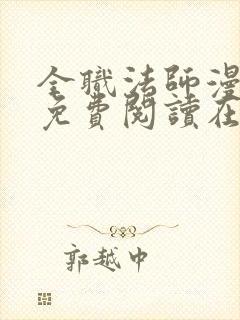 全職法師漫
免費閱讀在
郭越中